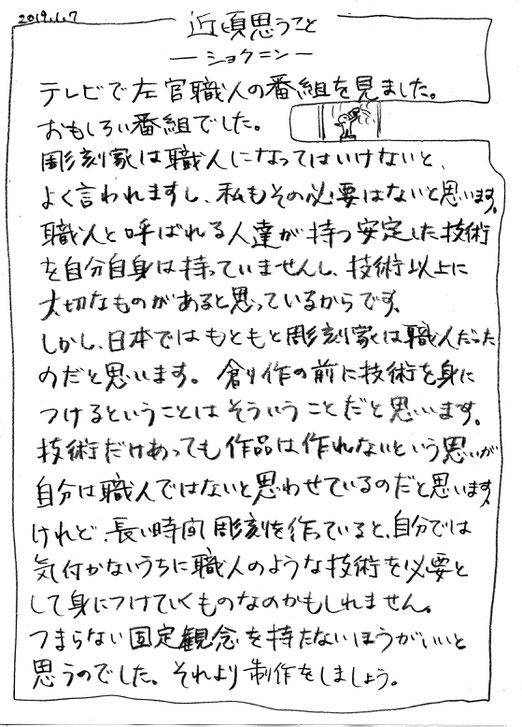 2019.1.7
近頃思うこと
―ショクニン―
テレビで左官職人の番組を見ました。
おもしろい番組でした。
彫刻家は職人になってはいけないと、
よく言われますし、私もその必要はないと思います。
職人と呼ばれる人達が持つ安定した技術
を自分自身は持っていませんし、技術以上に
大切なものがあると思っているからです。
しかし、日本ではもともと彫刻家は職人だった
のだと思います。創り作の前に技術を身に
つけるということはそういうことだと思います。
技術だけあっても作品は作れないという思いが
自分は職人ではないと思わせているのだと思います。
けれど、長い時間彫刻を作っていると、自分では
気付かないうちに職人のような技術を必要と
して身につけていくものなのかもしれません。
つまらない固定観念を持たないほうがいいと
思うのでした。それより制作をしましょう。